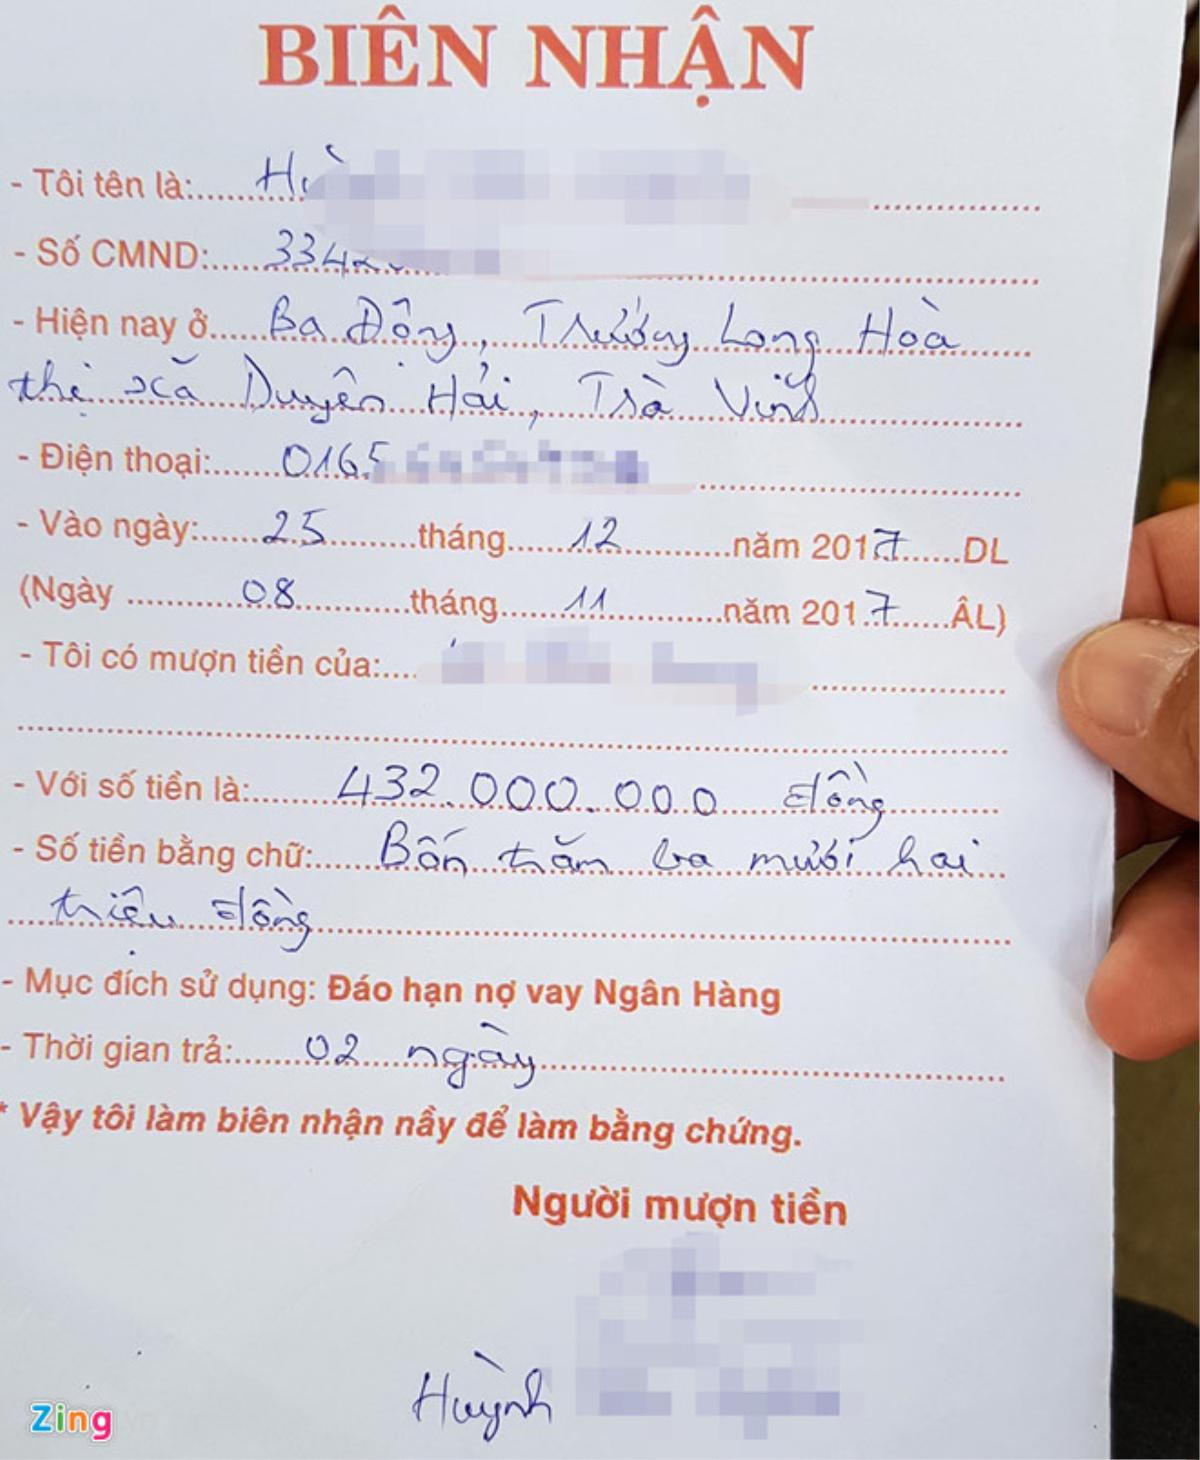 BIÊN NHẬN
- Tôi tên là:
- Số CMND: 3342
- Hiện nay ở Ba Động, Trường Long Hoà
thị xã Duyên Hải, Trà Vinh
- Điện thoại: 0165
- Vào ngày: 25 tháng 12 năm 2017 DL
(Ngày 08 tháng 11 năm 2017 ÂL)
- Tôi có mượn tiền của:
- Với số tiền là: 432.000.000 đồng
- Số tiền bằng chữ: Bốn trăm ba mươi hai
triệu đồng
- Mục đích sử dụng: Đáo hạn nợ vay Ngân Hàng
- Thời gian trả: 02 ngày
* Vậy tôi làm biên nhận nầy để làm bằng chứng.
Người mượn tiền
Huỳnh
Zing